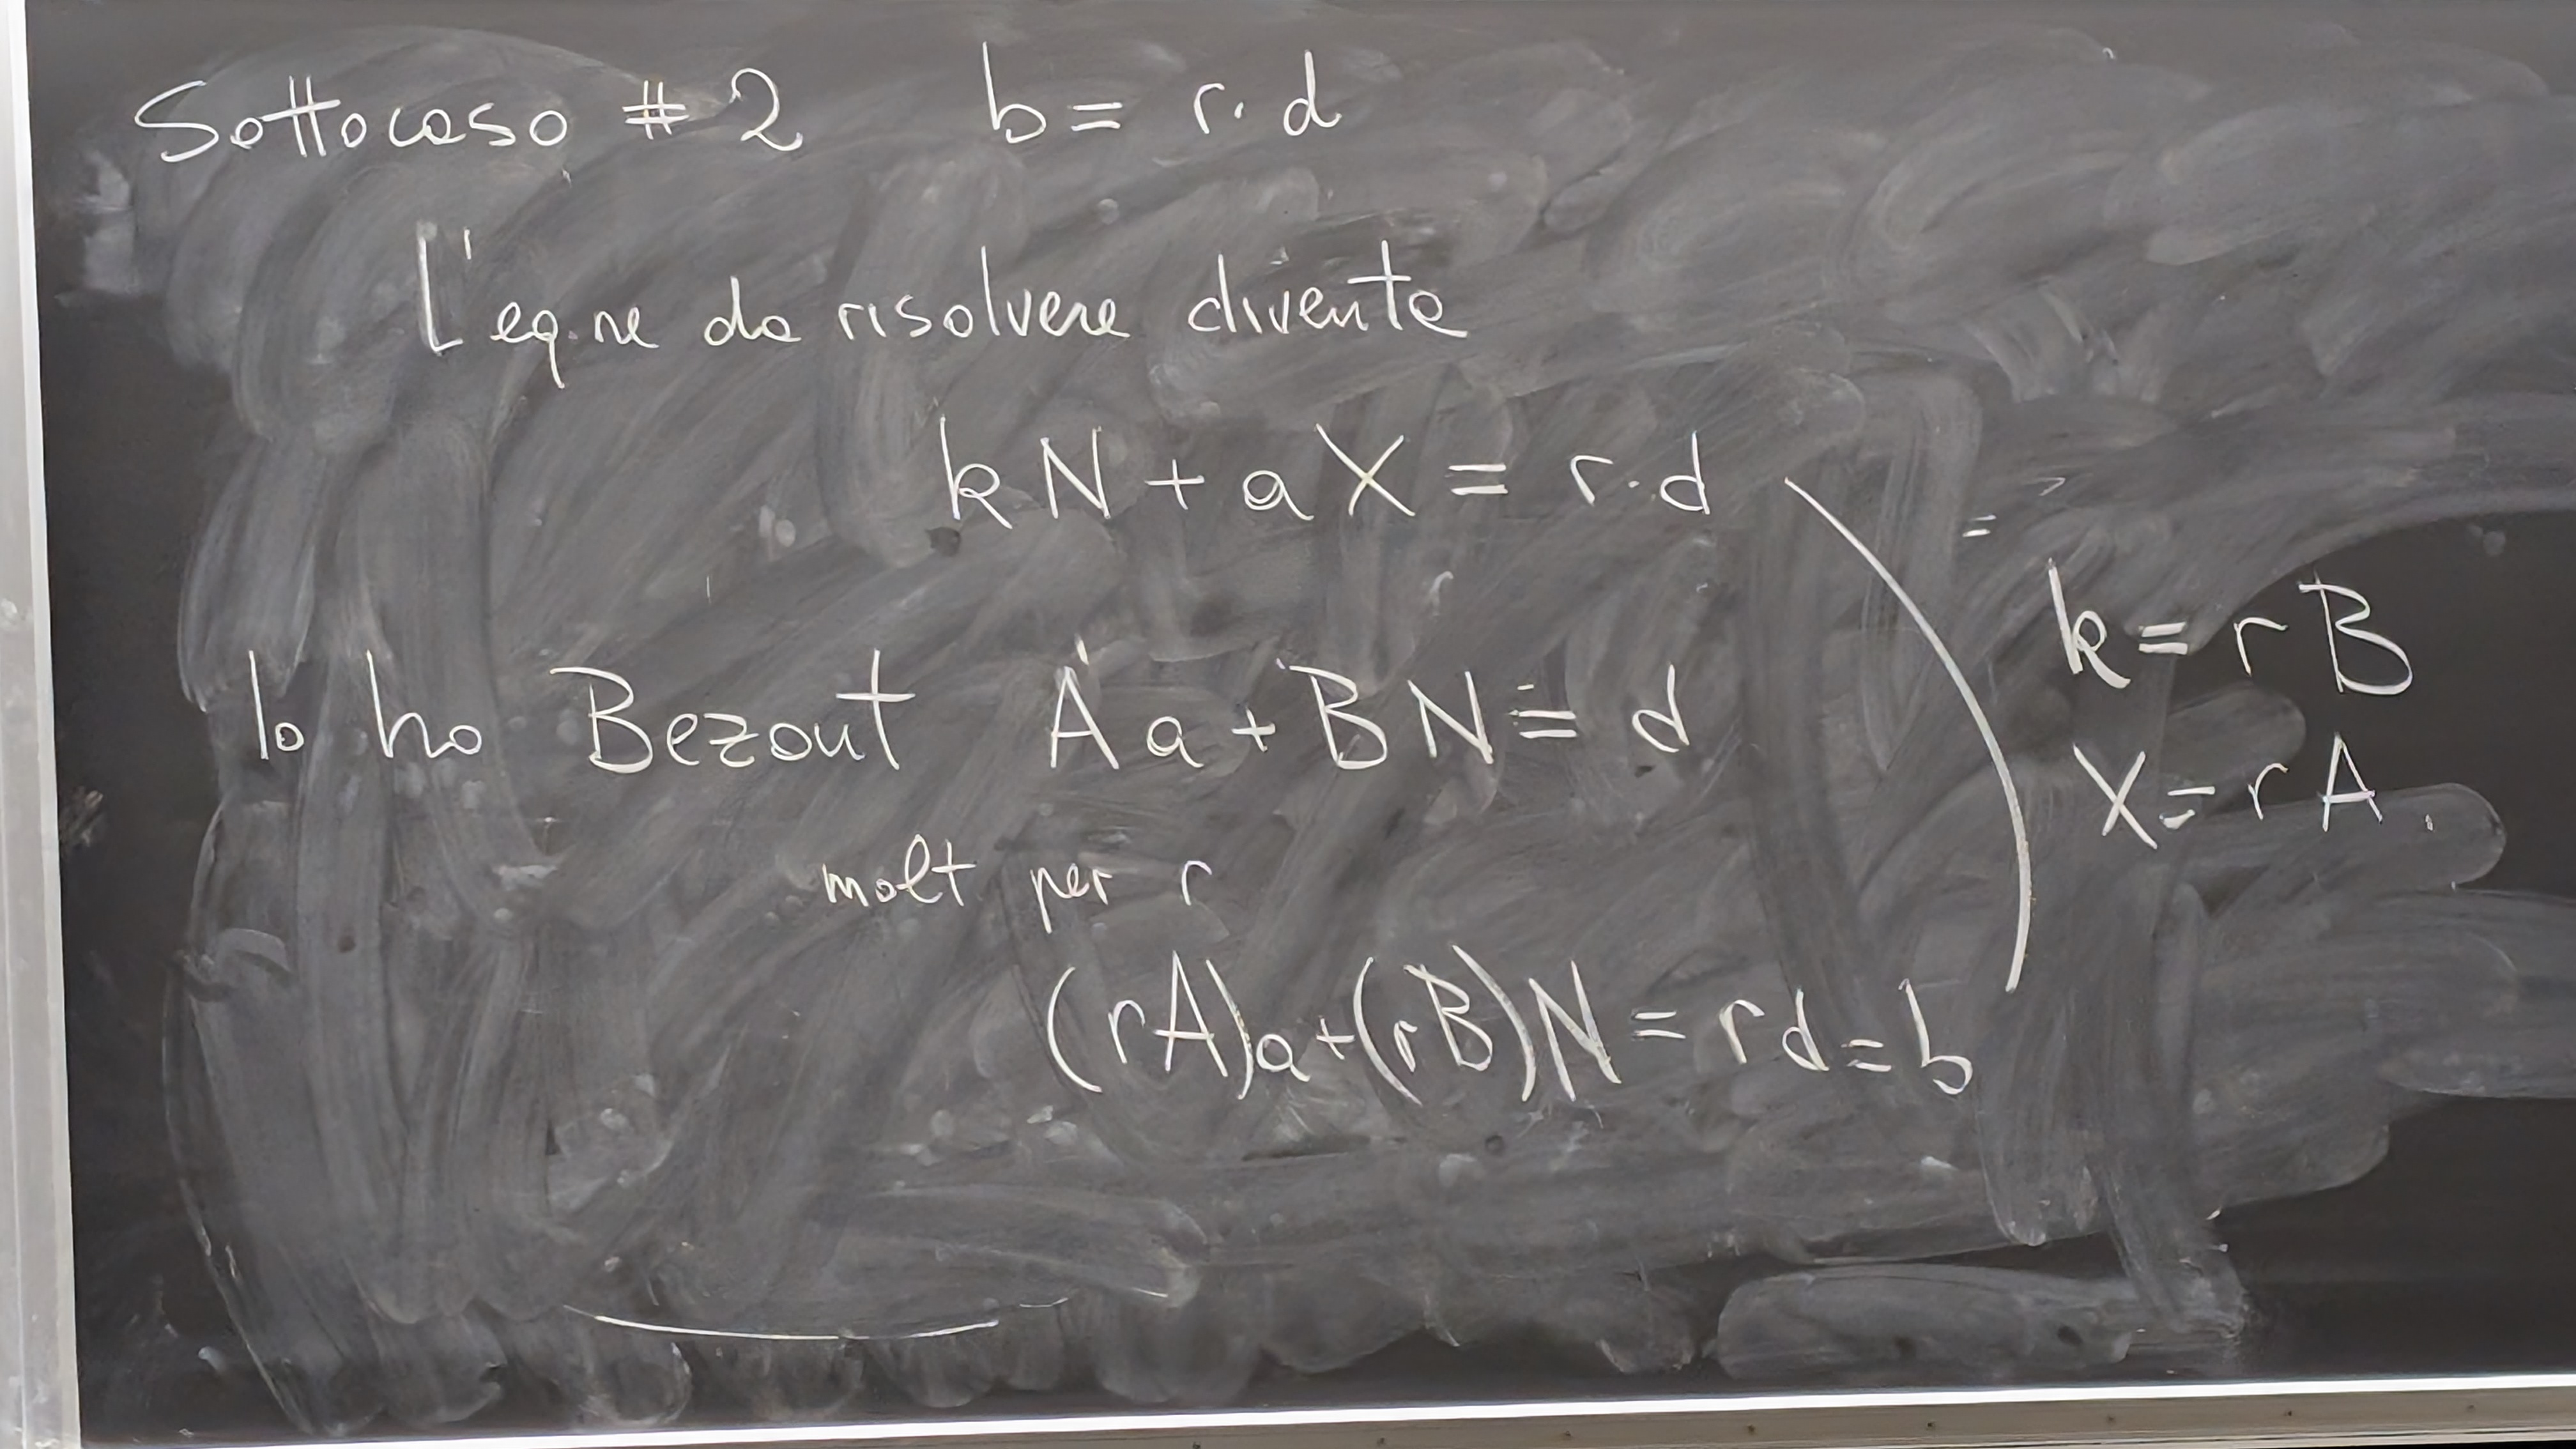 Sottocaso # 2 b = r. d
L'eq.ne da risolvere diventa
kN + aX = r.d
k = r B
Io ho Bezout Aa + BN = d
X = r A.
molt per r
(rA)a+(rB)N = rd = b